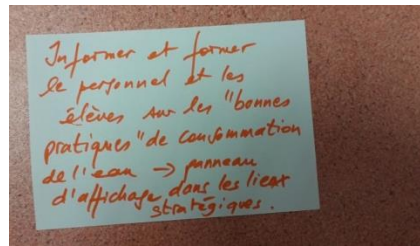 Informer et former
le personnel et les
élèves sur les "bonnes
pratiques" de consommation
de l'eau → panneau
d'affichage dans les lieux
stratégiques.